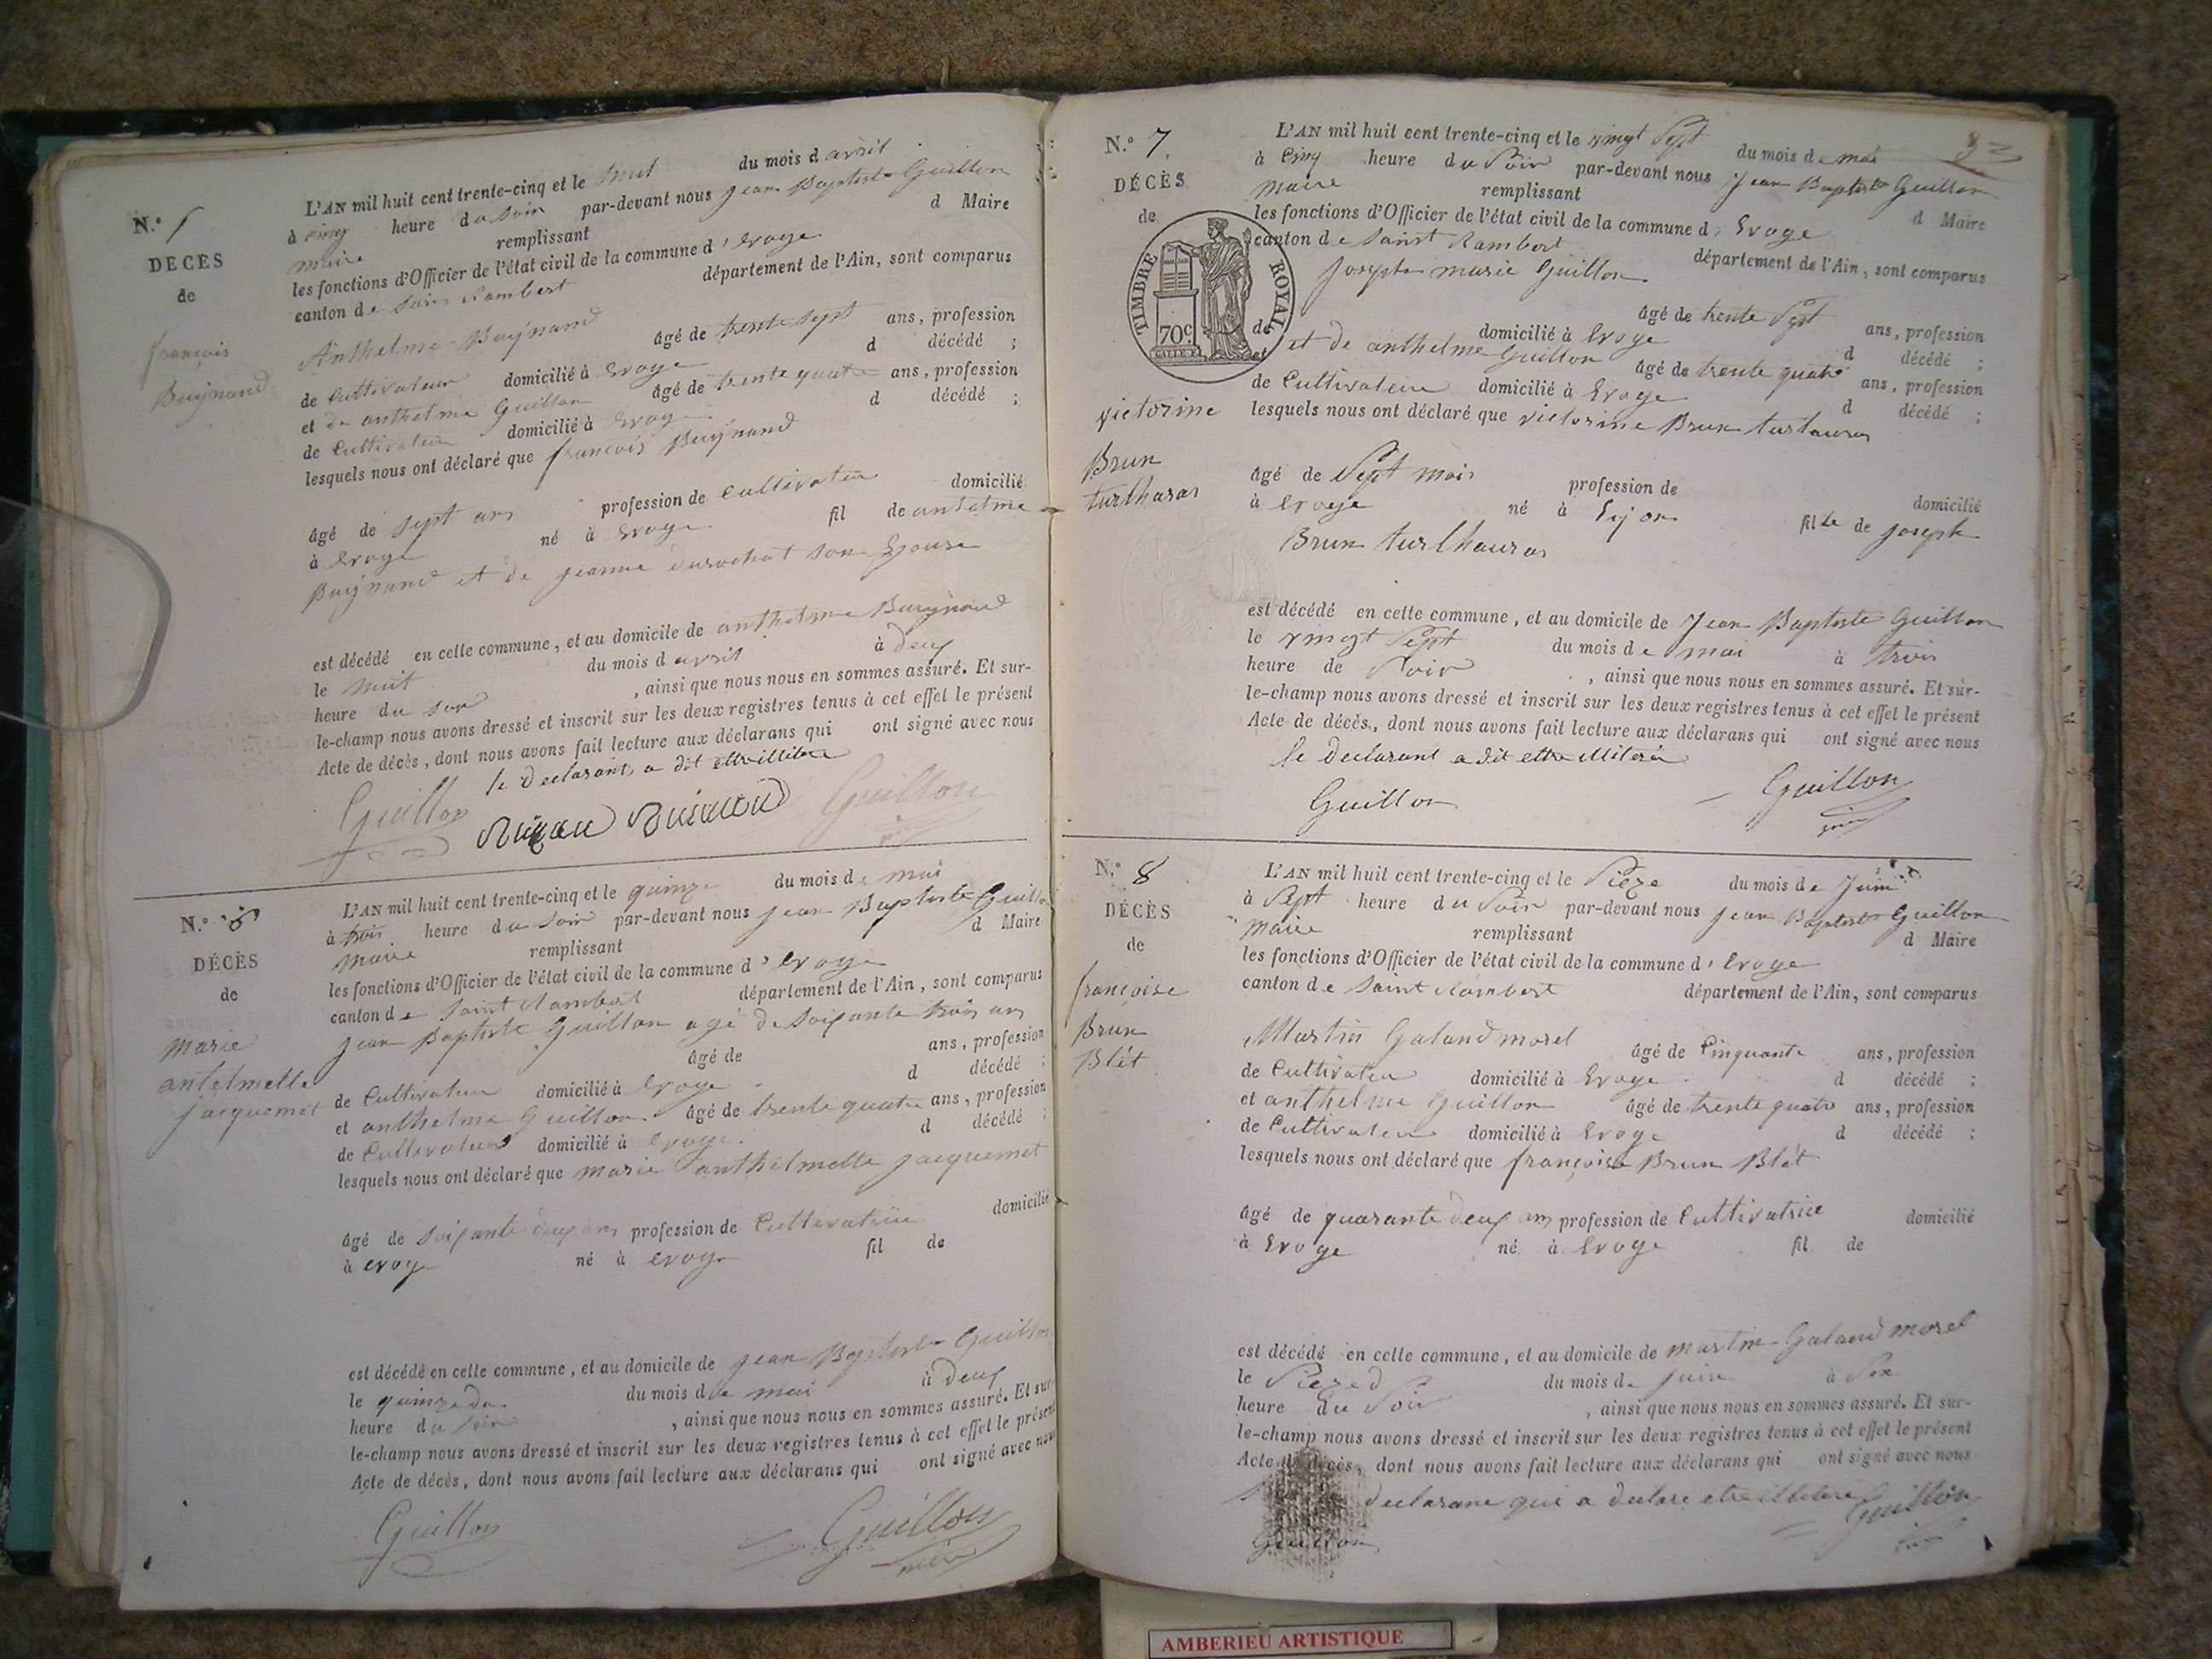 N.º 5
DÉCÈS
de
françois
Buynand
L'AN mil huit cent trente-cinq et le huit du mois d avril
à cinq heure du soir par-devant nous jean Baptiste Guillon
maire remplissant d Maire
les fonctions d'Officier de l'état civil de la commune d' Evoge
canton de Saint Rambert département de l'Ain, sont comparus
Anthelme Buynand âgé de trente sept ans, profession
de Cultivateur domicilié à Evoge d décédé ;
et de anthelme Guillon âgé de trente quatre ans, profession
de Cultivateur domicilié à Evoge d décédé ;
lesquels nous ont déclaré que françois Buynand
âgé de sept ans profession de cultivateur domicilié
à Evoge né à Evoge fil de antelme
Buynand et de jeanne durochat son Epouse
est décédé en cette commune, et au domicile de anthelme Buynand
le huit du mois d avril à deux
heure du soir , ainsi que nous nous en sommes assuré. Et sur-
le-champ nous avons dressé et inscrit sur les deux registres tenus à cet effet le présent
Acte de décès, dont nous avons fait lecture aux déclarans qui ont signé avec nous
le declarant a dit
Guillon Guillon
N.º
DÉCÈS
de
Marie
antelmette
jacquemet
L'AN mil huit cent trente-cinq et le quinze du mois de mai
à trois heure du soir par-devant nous jean Baptiste Guillon
Maire remplissant d Maire
les fonctions d'Officier de l'état civil de la commune d' Evoge
canton de Saint Rambert département de l'Ain, sont comparus
jean Baptiste Guillon agé de soixante trois ans
âgé de ans, profession
de Cultivateur domicilié à Evoge d décédé ;
et anthelme Guillon âgé de trente quatre ans, profession
de Cultivateur domicilié à Evoge d décédé ;
lesquels nous ont déclaré que marie anthelmette jacquemet
âgé de soixante deux ans profession de Cultivatrice domicilié
à evoge né à evoge fil de
est décédé en cette commune, et au domicile de jean Baptiste Guillon
le quinze du du mois de mai à deux
heure du soir , ainsi que nous nous en sommes assuré. Et sur-
le-champ nous avons dressé et inscrit sur les deux registres tenus à cet effet le présent
Acte de décès, dont nous avons fait lecture aux déclarans qui ont signé avec nous
Guillon Guillon
maire
N.º 7
DÉCÈS
de
TIMBRE ROYAL
70c
victorine
Brun
turlharas
L'AN mil huit cent trente-cinq et le vingt Sept du mois de mai
à Cinq heure du Soir par-devant nous Jean Baptiste Guillon
maire remplissant d Maire
les fonctions d'Officier de l'état civil de la commune d' Evoge
canton de Saint Rambert département de l'Ain, sont comparus
joseph marie Guillon âgé de trente Sept ans, profession
de domicilié à Evoge d décédé ;
et de anthelme Guillon âgé de trente quatre ans, profession
de Cultivateur domicilié à Evoge d décédé ;
lesquels nous ont déclaré que victorine Brun
âgé de Sept mois profession de domicilié
à Evoge né à Lyon fille de joseph
Brun turlhauras
est décédé en cette commune, et au domicile de Jean Baptiste Guillon
le vingt Sept du mois de mai à trois
heure de Soir , ainsi que nous nous en sommes assuré. Et sur-
le-champ nous avons dressé et inscrit sur les deux registres tenus à cet effet le présent
Acte de décès, dont nous avons fait lecture aux déclarans qui ont signé avec nous
le declarant a dit
Guillon Guillon
N.º 8
DÉCÈS
de
françoise
Brun
Blét
L'AN mil huit cent trente-cinq et le Sieze du mois de Juin
à Sept heure du Soir par-devant nous jean Baptiste Guillon
maire remplissant d Maire
les fonctions d'Officier de l'état civil de la commune d' Evoge
canton de Saint Rambert département de l'Ain, sont comparus
Martin Galand morel âgé de Cinquante ans, profession
de Cultivateur domicilié à Evoge d décédé ;
et anthelme Guillon âgé de trente quatre ans, profession
de Cultivateur domicilié à Evoge d décédé ;
lesquels nous ont déclaré que françoise Brun Blét
âgé de quarante deux ans profession de Cultivatrice domicilié
à Evoge né à Evoge fil de
est décédé en cette commune, et au domicile de martin Galand morel
le du mois de juin à Six
heure du Soir , ainsi que nous nous en sommes assuré. Et sur-
le-champ nous avons dressé et inscrit sur les deux registres tenus à cet effet le présent
Acte de décès, dont nous avons fait lecture aux déclarans qui ont signé avec nous
qui a
Guillon
Guillon
AMBERIEU ARTISTIQUE